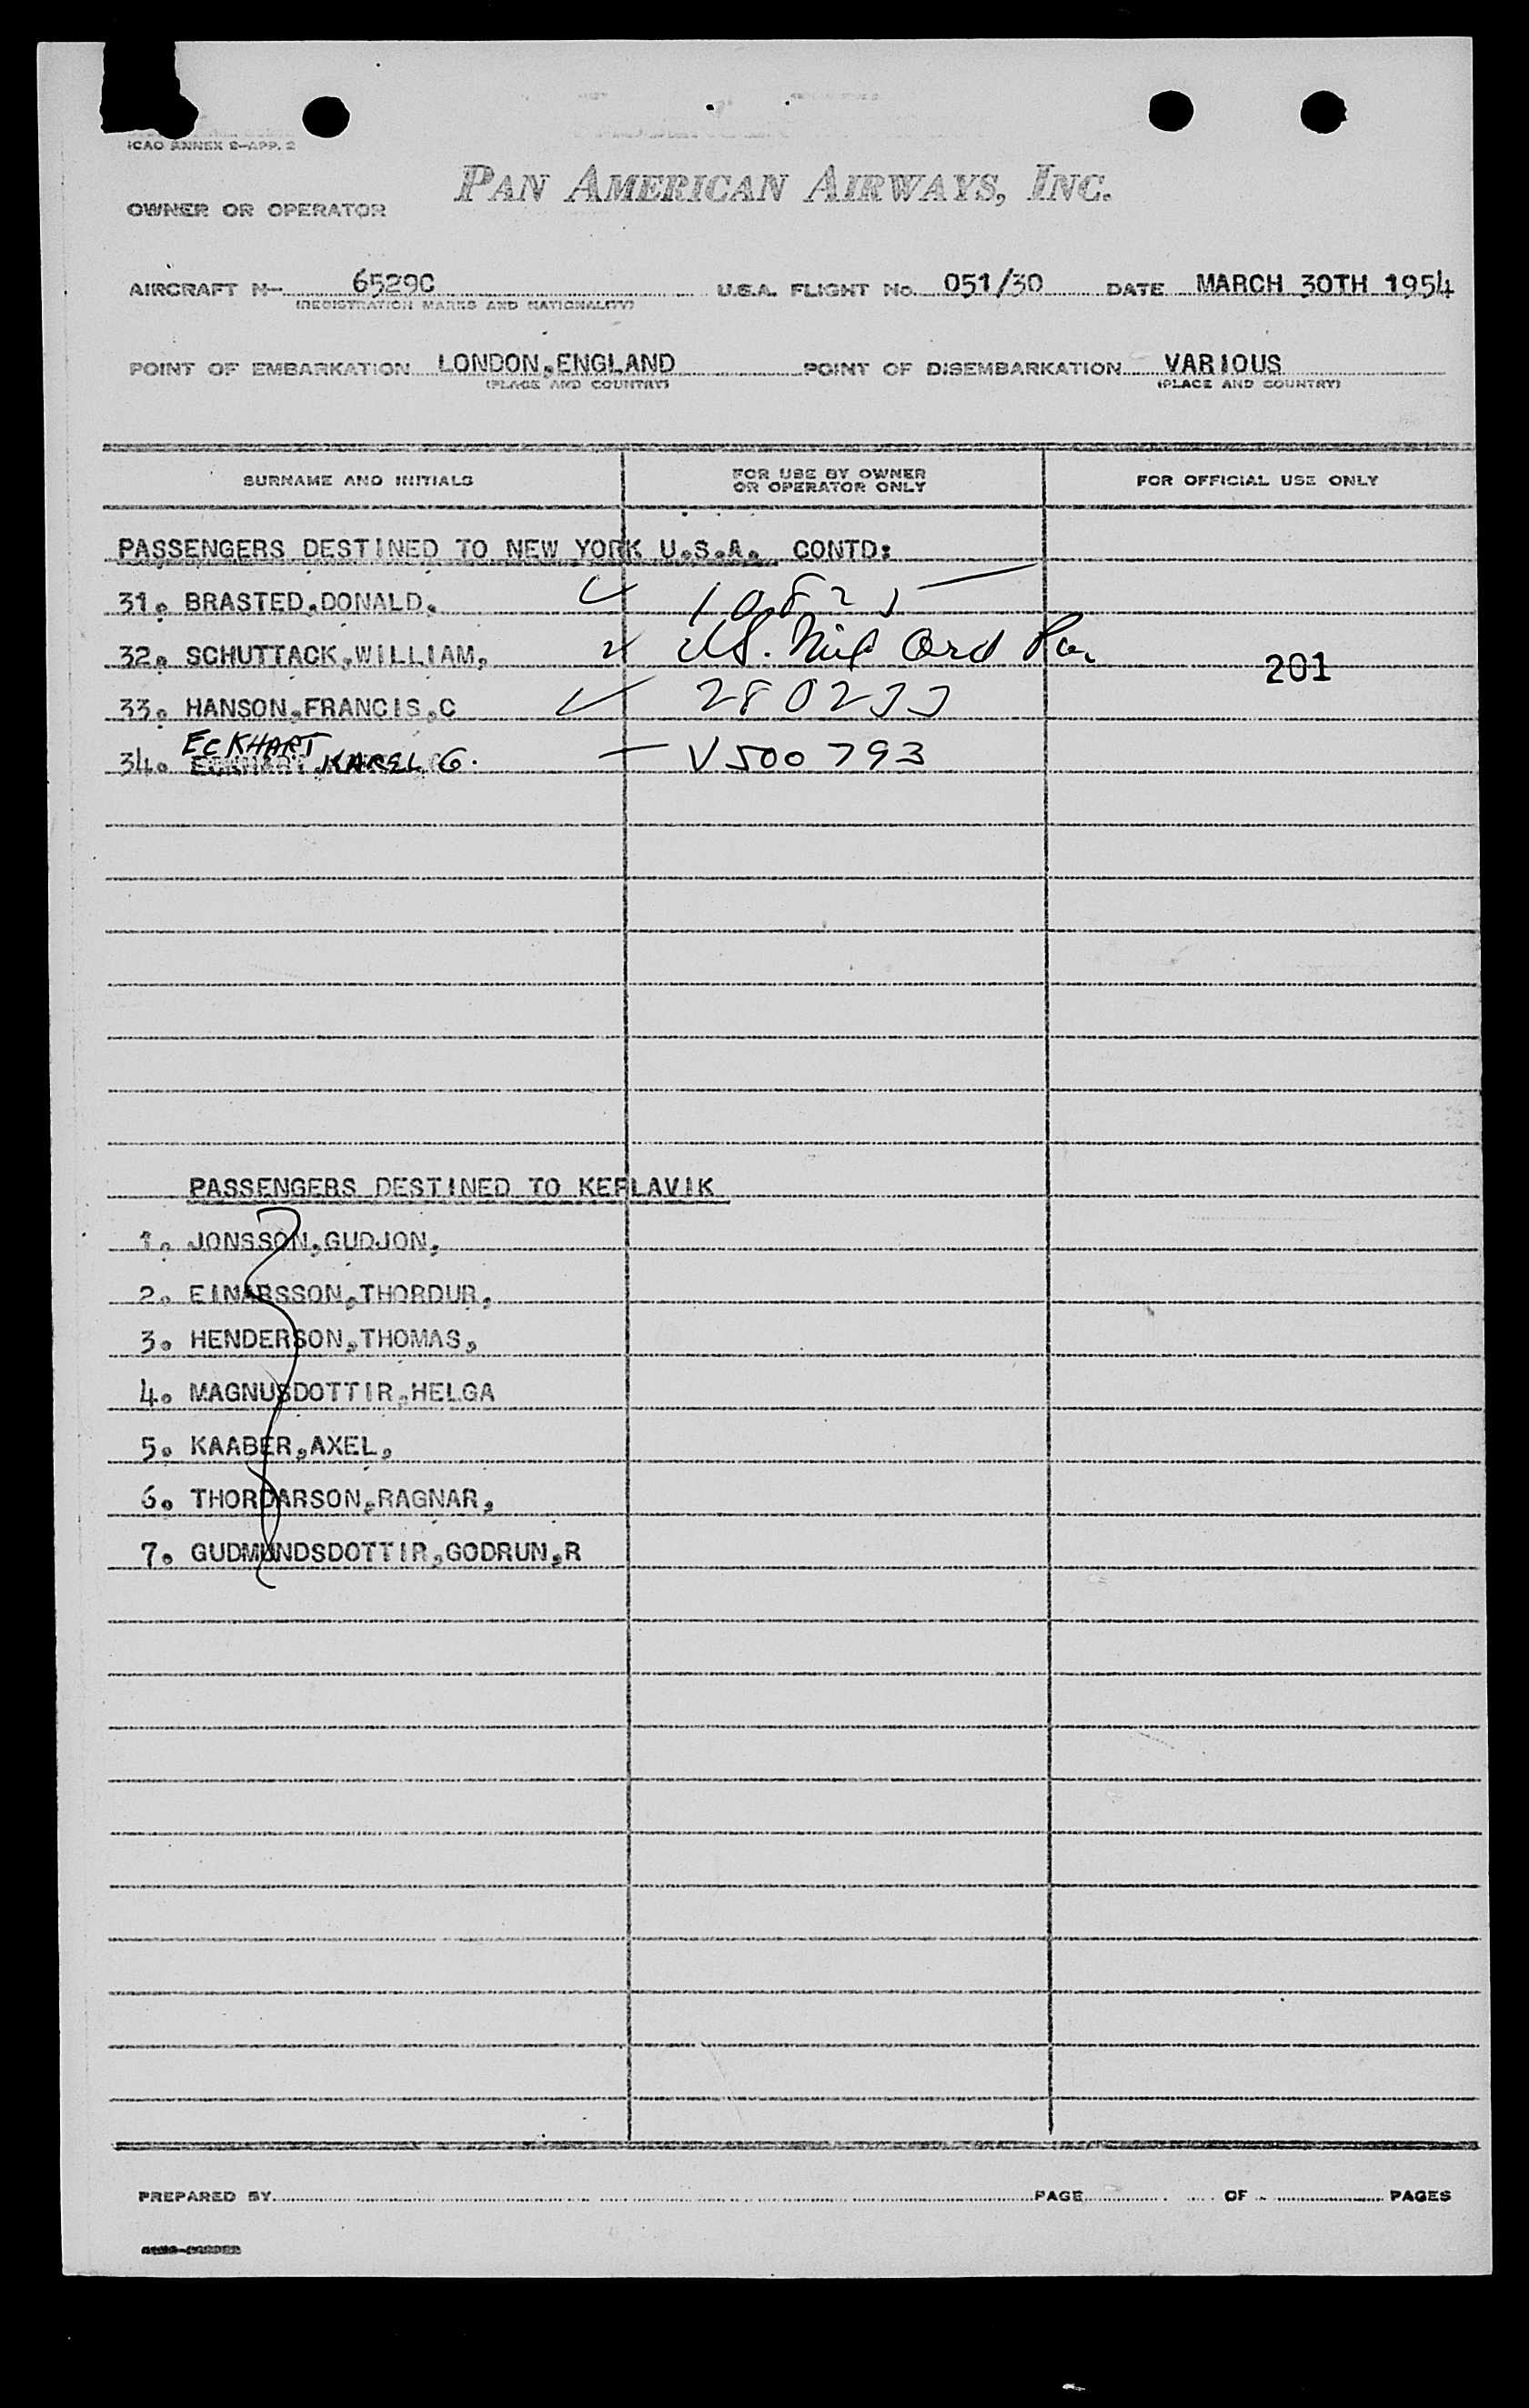 ICAO ANNEX 9-APP. 2
PAN AMERICAN AIRWAYS, INC.
OWNER OR OPERATOR
AIRCRAFT N- 6529C U.S.A. FLIGHT No. 051/30 DATE MARCH 30TH 1954
(REGISTRATION MARKS AND NATIONALITY)
POINT OF EMBARKATION LONDON,ENGLAND POINT OF DISEMBARKATION VARIOUS
(PLACE AND COUNTRY) (PLACE AND COUNTRY)
SURNAME AND INITIALS FOR USE BY OWNER OR OPERATOR ONLY FOR OFFICIAL USE ONLY
PASSENGERS DESTINED TO NEW YORK U.S.A. CONTD:
31. BRASTED,DONALD.
32. SCHUTTACK,WILLIAM, 201
33. HANSON,FRANCIS,C
34. ECKHART KAREL G. V500793
PASSENGERS DESTINED TO KEFLAVIK
1. JONSSON,GUDJON,
2. EINARSSON,THORDUR,
3. HENDERSON,THOMAS,
4. MAGNUSDOTTIR,HELGA
5. KAABER,AXEL,
6. THORDARSON,RAGNAR,
7. GUDMUNDSDOTTIR,GODRUN,R
PREPARED BY PAGE OF PAGES